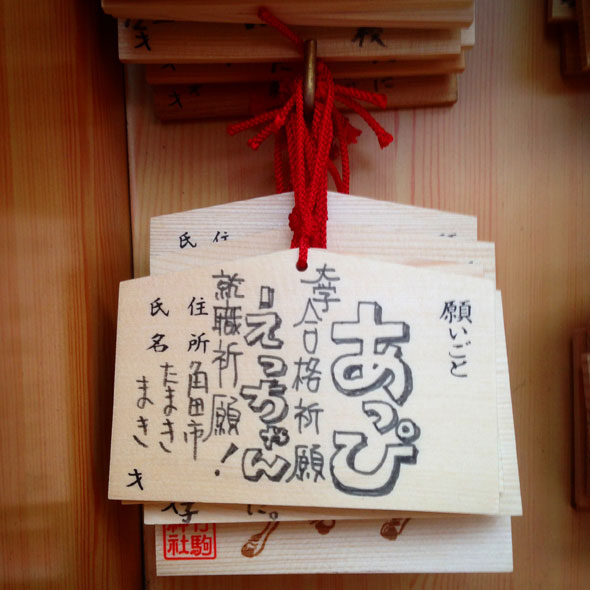 願いごと
あっぴ
大学合格祈願
えっちゃん
就職祈願!
住所 角田市
たまき
氏名 まき
才
氏
住
に。
駒
神社
才
才